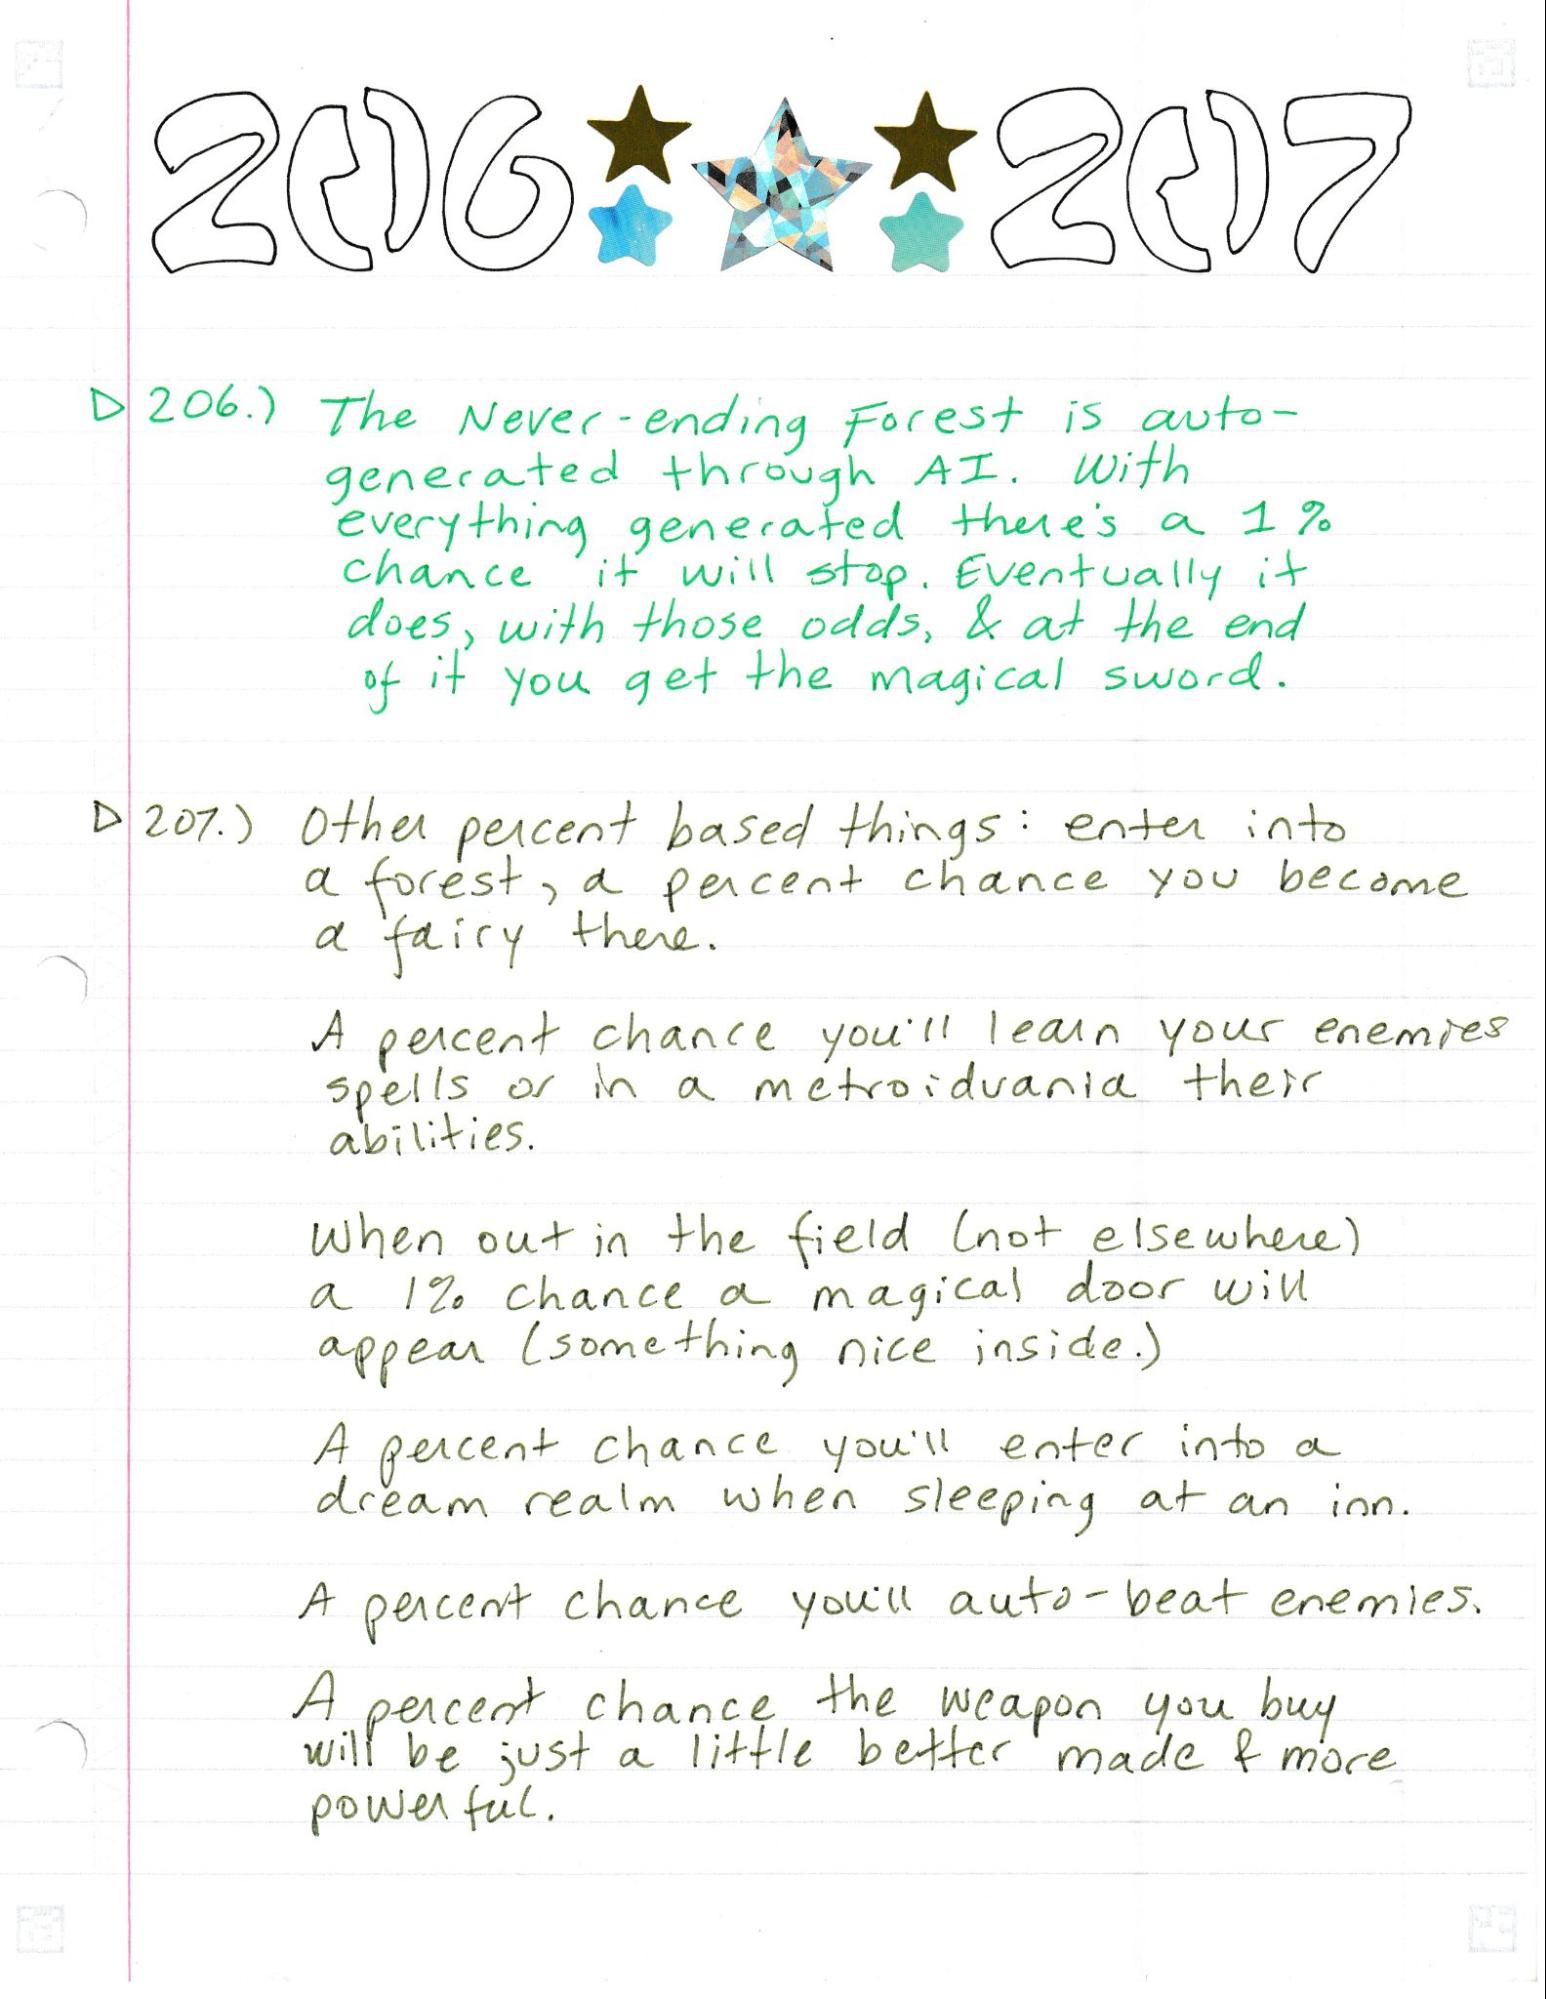 206 207
206.) The Never-ending Forest is auto-
generated through AI. With
everything generated there's a 1%
chance it will stop. Eventually it
does, with those odds, & at the end
of it you get the magical sword.
207.) Other percent based things: enter into
a forest, a percent chance you become
a fairy there.
A percent chance you'll learn your enemies
spells or in a metroidvania their
abilities.
When out in the field (not elsewhere)
a 1% chance a magical door will
appear (something nice inside.)
A percent chance you'll enter into a
dream realm when sleeping at an inn.
A percent chance you'll auto-beat enemies.
A percent chance the weapon you buy
will be just a little better made & more
powerful.